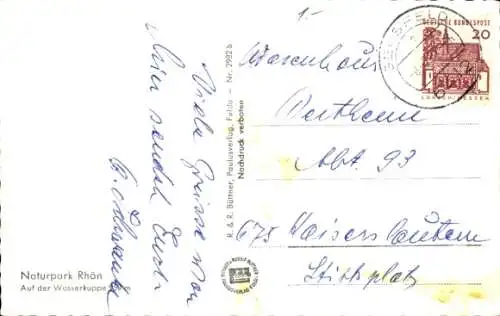 Viele Grüsse von
hier sendet Euch
Naturpark Rhön
Auf der Wasserkuppe
R. & R. Büttner, Paulusverlag, Fulda — Nr. 2982 b
Nachdruck verboten
1.-
DEUTSCHE BUNDESPOST
20
LORSCH/HESSEN
Warenhaus
Wertheim
Abt. 93
675 Kaiserslautern
Stiftsplatz